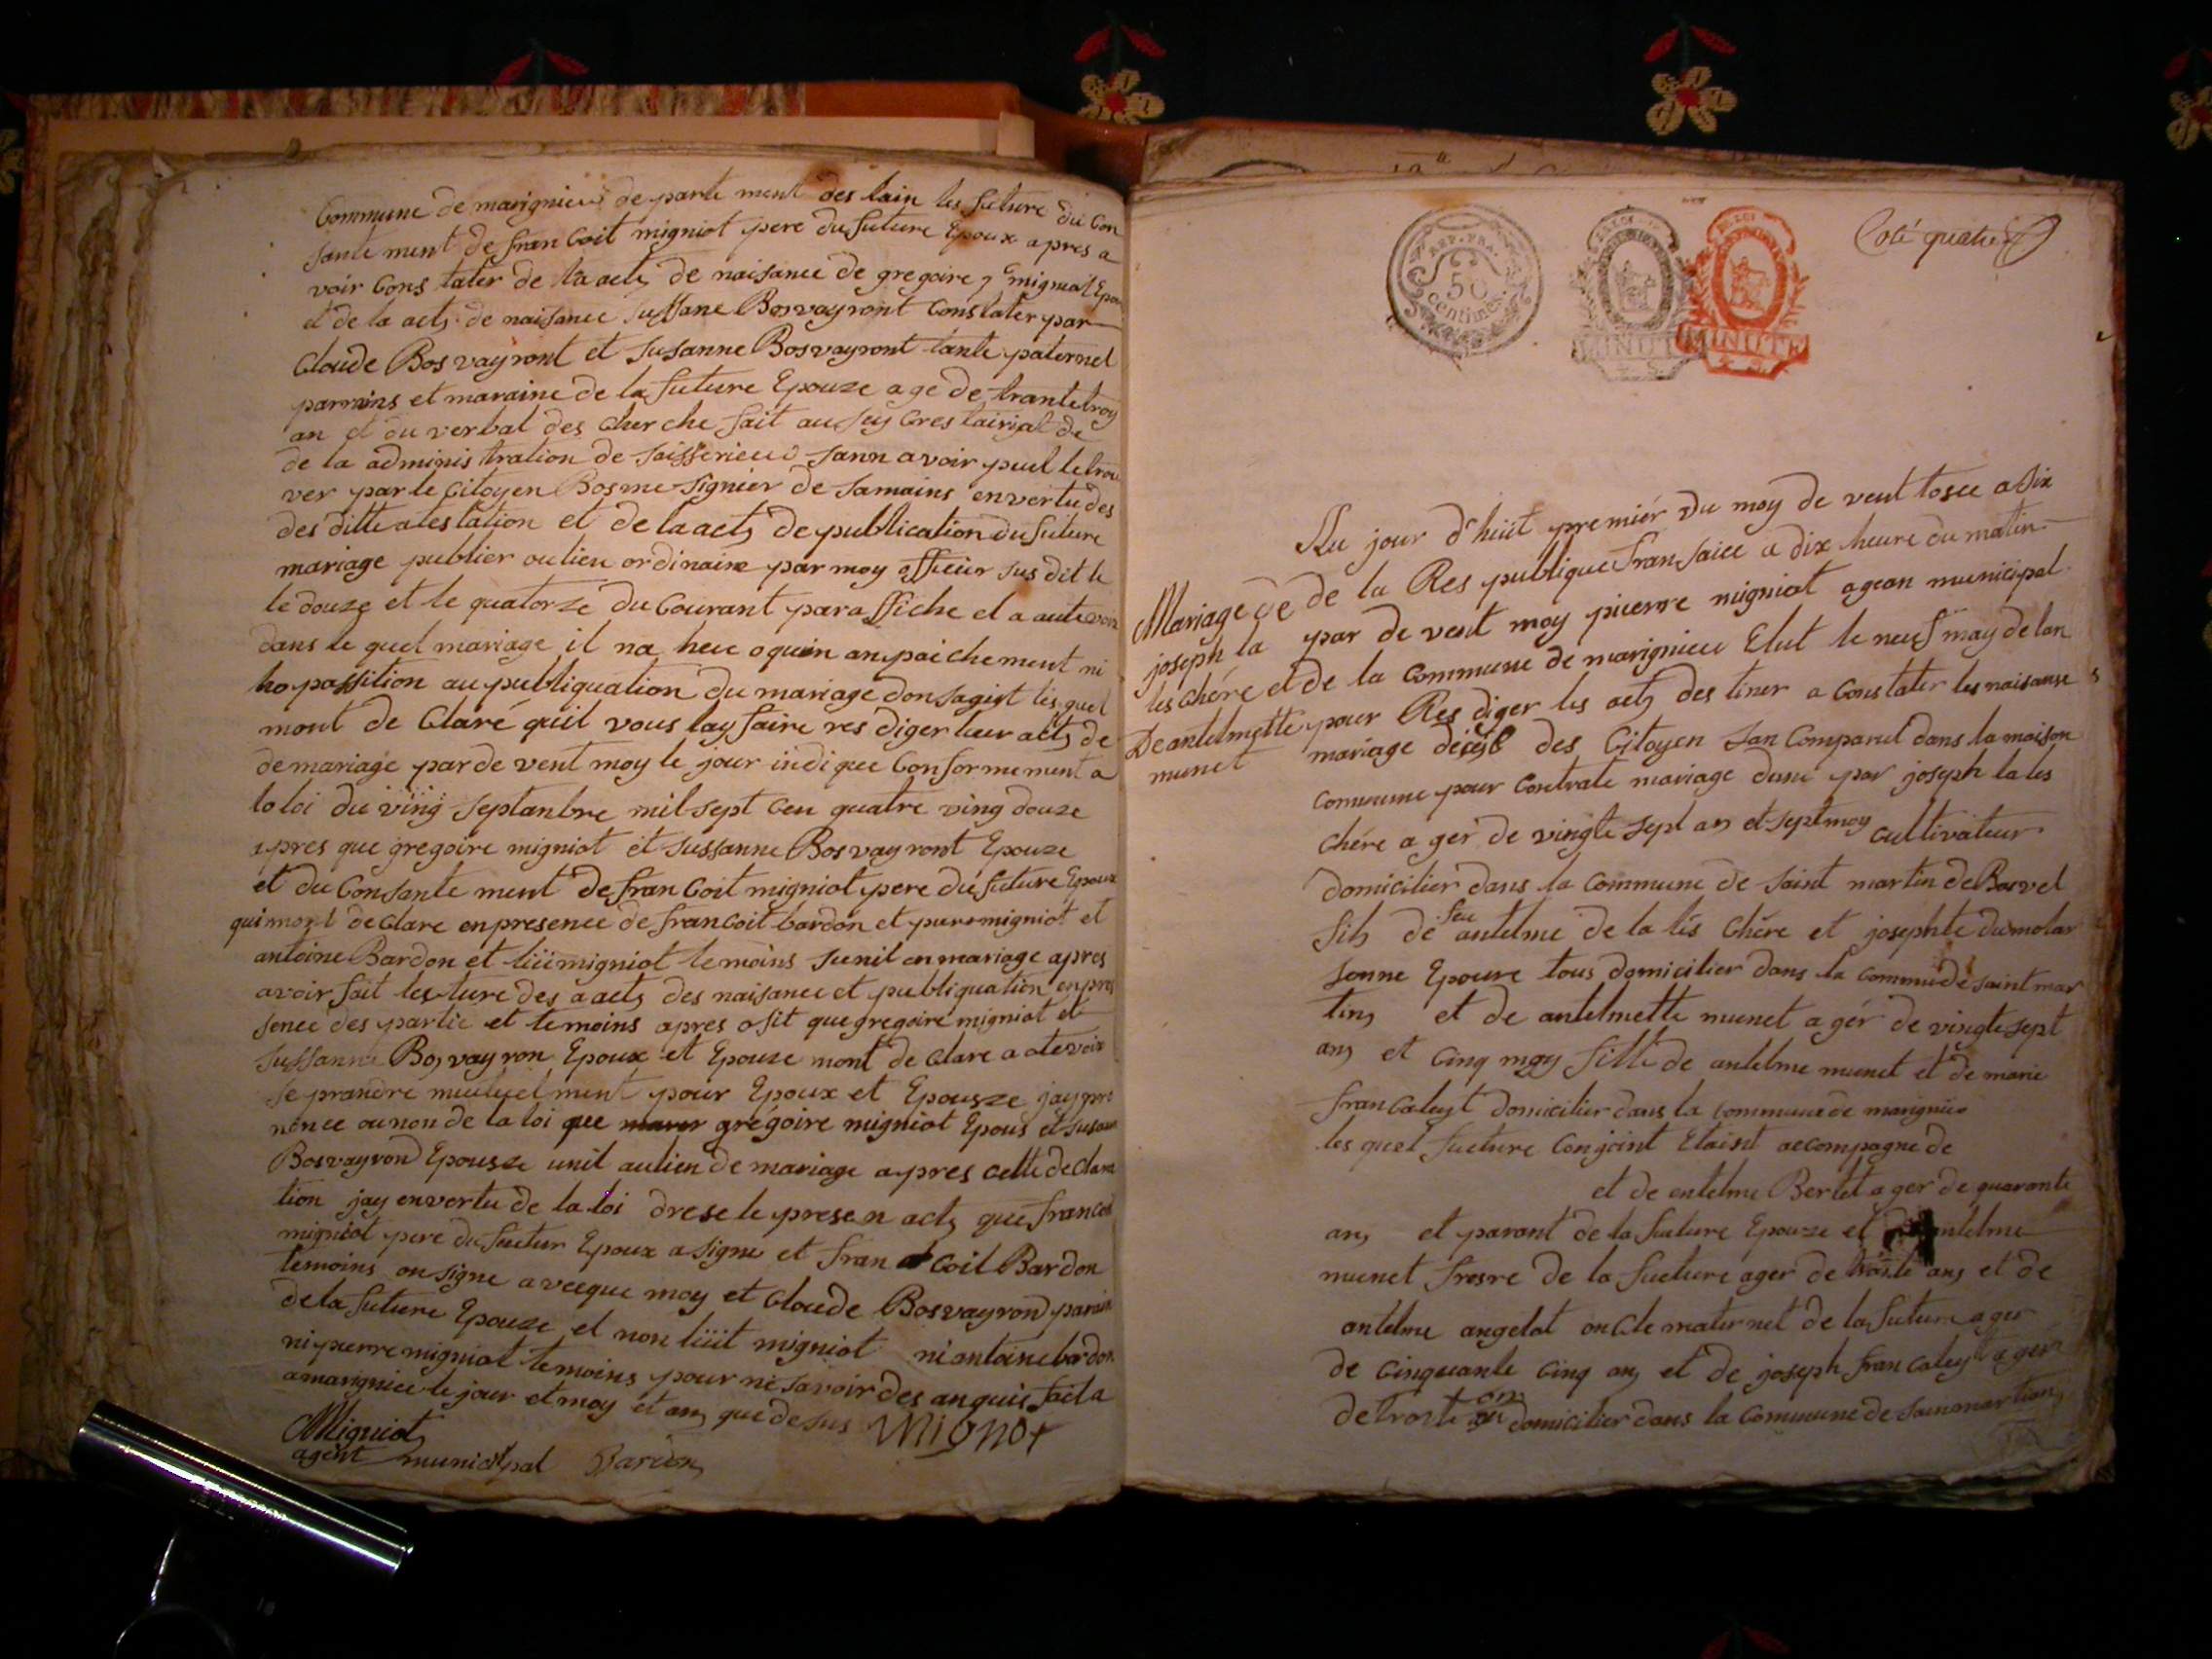 Commune de marignieu de parte ment des lain les future du Con
sante ment de fran Coit migniot pere du future Epoux apres a
voir Cons tater de la acts de naisance de gregoire migniot Epou
et de la acts de naisance Sussane Bosvayront Constater par
Claude Bosvayront et Susanne Bosvayront tante paternel
parrains et maraine de la future Epouze age de trante troy
an et du verbal des Cher che fait au sey Cres tairiat de
de la adminis tration de Seisserieu sann avoir puel le trou
ver par le Citoyen Bosme signier de samains en vertu des
des ditte ates tation et de la acts de publication du future
mariage publier au lieu ordinaire par moy officier sus dit le
le douze et le quatorze du Courant par affiche et a aute voix
dans le quel mariage il na heu oquin anpaichement ni
ho possition au publiquation du mariage don sagist les quel
mont de Claré quil vous lay faire res diger leur acts de
de mariage par de vent moy le jour indi quee Conformement a
la loi du ving septanbre mil sept Cen quatre ving douze
apres que gregoire migniot et Sussanne Bosvayront Epouze
et du Consante ment de fran Coit migniot pere du future Epoux
qui mont de Clare en presence de fran Coit bardon et piere migniot et
antoine Bardon et liüi migniot temoins sunit en mariage apres
avoir fait lecture des a acts des naisance et publiquation en pre
sence des partie et temoins apres osit que gregoire migniot et
Sussanne Bosvayron Epoux et Epouze mont de Clare a ote voix
se prandre mutuel ment pour Epoux et Epousze jay pro
nonce ou non de la loi que gregoire migniot Epous et Susann
Bosvayrond Epousze unit au lien de mariage apres cette de Clara
tion jay en vertu de la loi drese le presen acts que francoit
migniot pere du fuetur Epoux a signe et fran Coit Bardon
temoins on signe avecque moy et Cloude Bosvayrond parain
de la future Epouze et non liüit migniot ni antoine bardon
ni pierre migniot temoins pour ne savoir des anquis fait a
a marignieu le jour et moy et an que de sus Mignot
Migniot
agent municipal Bardon
REP. FRA.
50
centimes
MINUTE
MINUTE
Coté quatre
Mariage de
joseph la
les Chére et
De antelmette
munet
Au jour d'huit premiér du moy de vent tosee a Six
de la Res publique fransaice a dix heure du matin
par de vent moy pieerre migniot agean municipal
de la Commune de marignieu Elut le neuf may de lan
pour Res diger les acts des tiner a Constater les naisanse
mariage déçés des Citoyen san Comparut dans la maison
Commune pour Contrate mariage dune par joseph la les
Chére a ger de vingte sept an et sept moy cultivateur
domicilier dans la Commune de saint martin de Bavel
fils de feu antelme de la lés Chére et josephte dumolar
sonne Epouze tous domicilier dans la Commune de saint mar
tin et de antelmette munet a gér de vingte sept
ans et Cinq moy fille de antelme munet et de marie
fran Caleyt domicilier dans la Commune de marignieu
les quel fueture Conjoint Etaisnt accompagne de
et de entelme Bertet a ger de quarante
ans et parant de la fueture Epouze et antelme
munet fresre de la fueture ager de trante ans et de
antelme angelot oncle maternel de la future ager
de cinquante Cinq ans et de joseph fran Caleyt a ger
de trante an domicilier dans la Commune de sainmartien